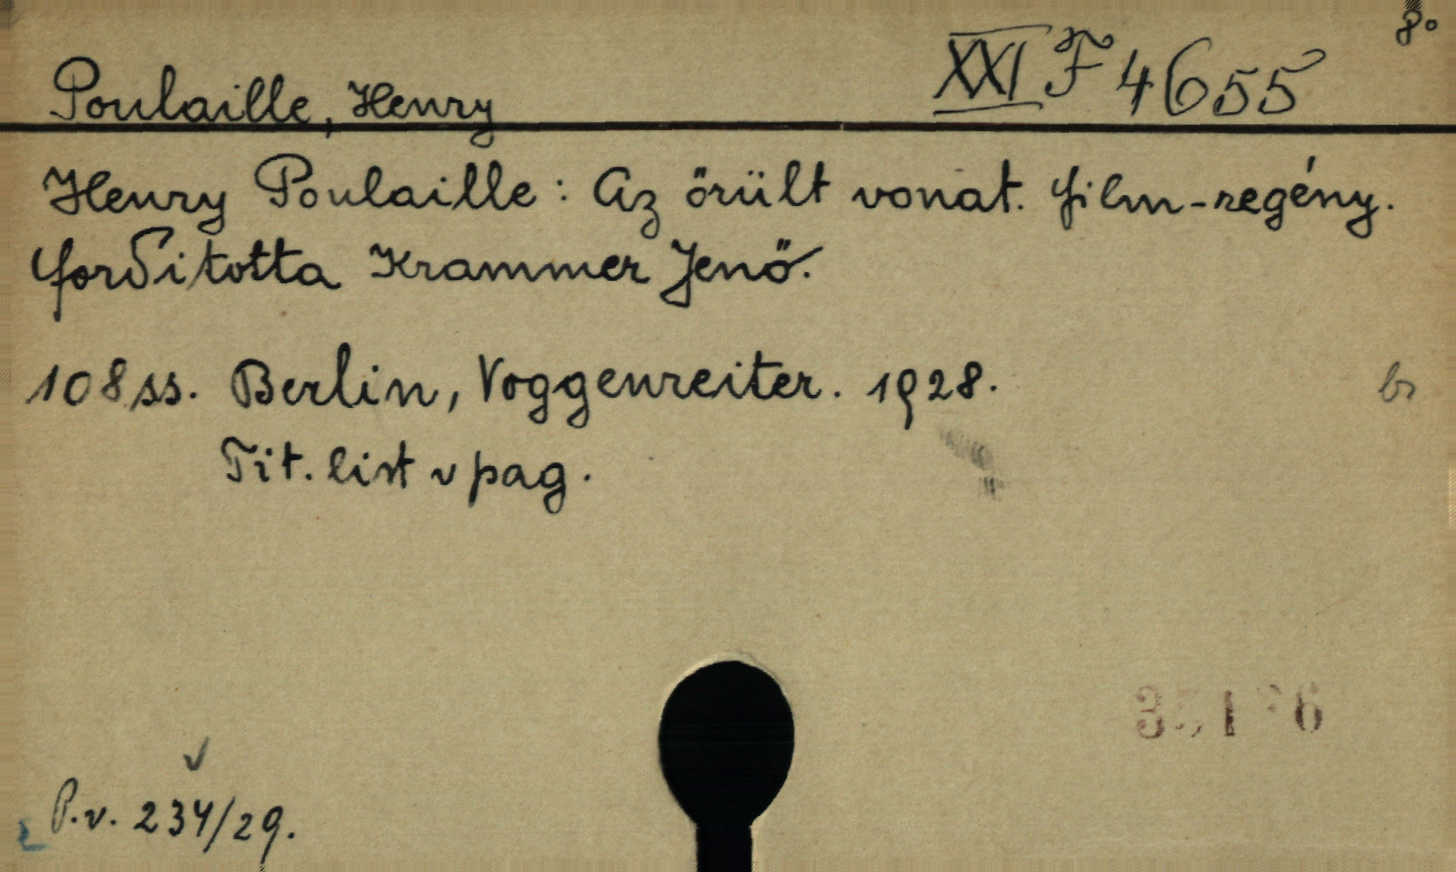 8°
Poulaille, Henry XXI F 4655
Henry Poulaille: Az örült vonat. Film-regény.
Forditotta Krammer Jenő.
108 ss. Berlin, Voggenreiter. 1928.
Tit. list v pag.
P.v. 234/29.